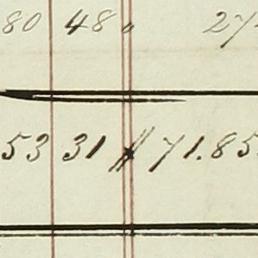 80 48 " 27
53 31 " 71.85